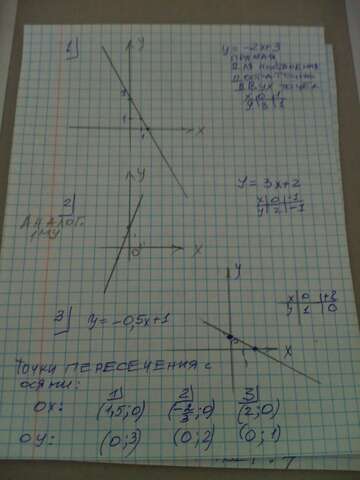 1)
y
y = -2x+3
ПРЯМАЯ
ДВУХ ТОЧЕК
x | 0 | 1
y | 3 | 1
3
1
1
x
2)
АНАЛОГ.
1МУ
y
0
x
y = 3x+2
x | 0 | -1
y | 2 | -1
3)
y = -0,5x+1
y
x
x | 0 | +2
y | 1 | 0
ТОЧКИ ПЕРЕСЕЧЕНИЯ с
осями:
1) 2) 3)
OX: (1,5;0) (-2/3;0) (2;0)
OY: (0;3) (0;2) (0;1)